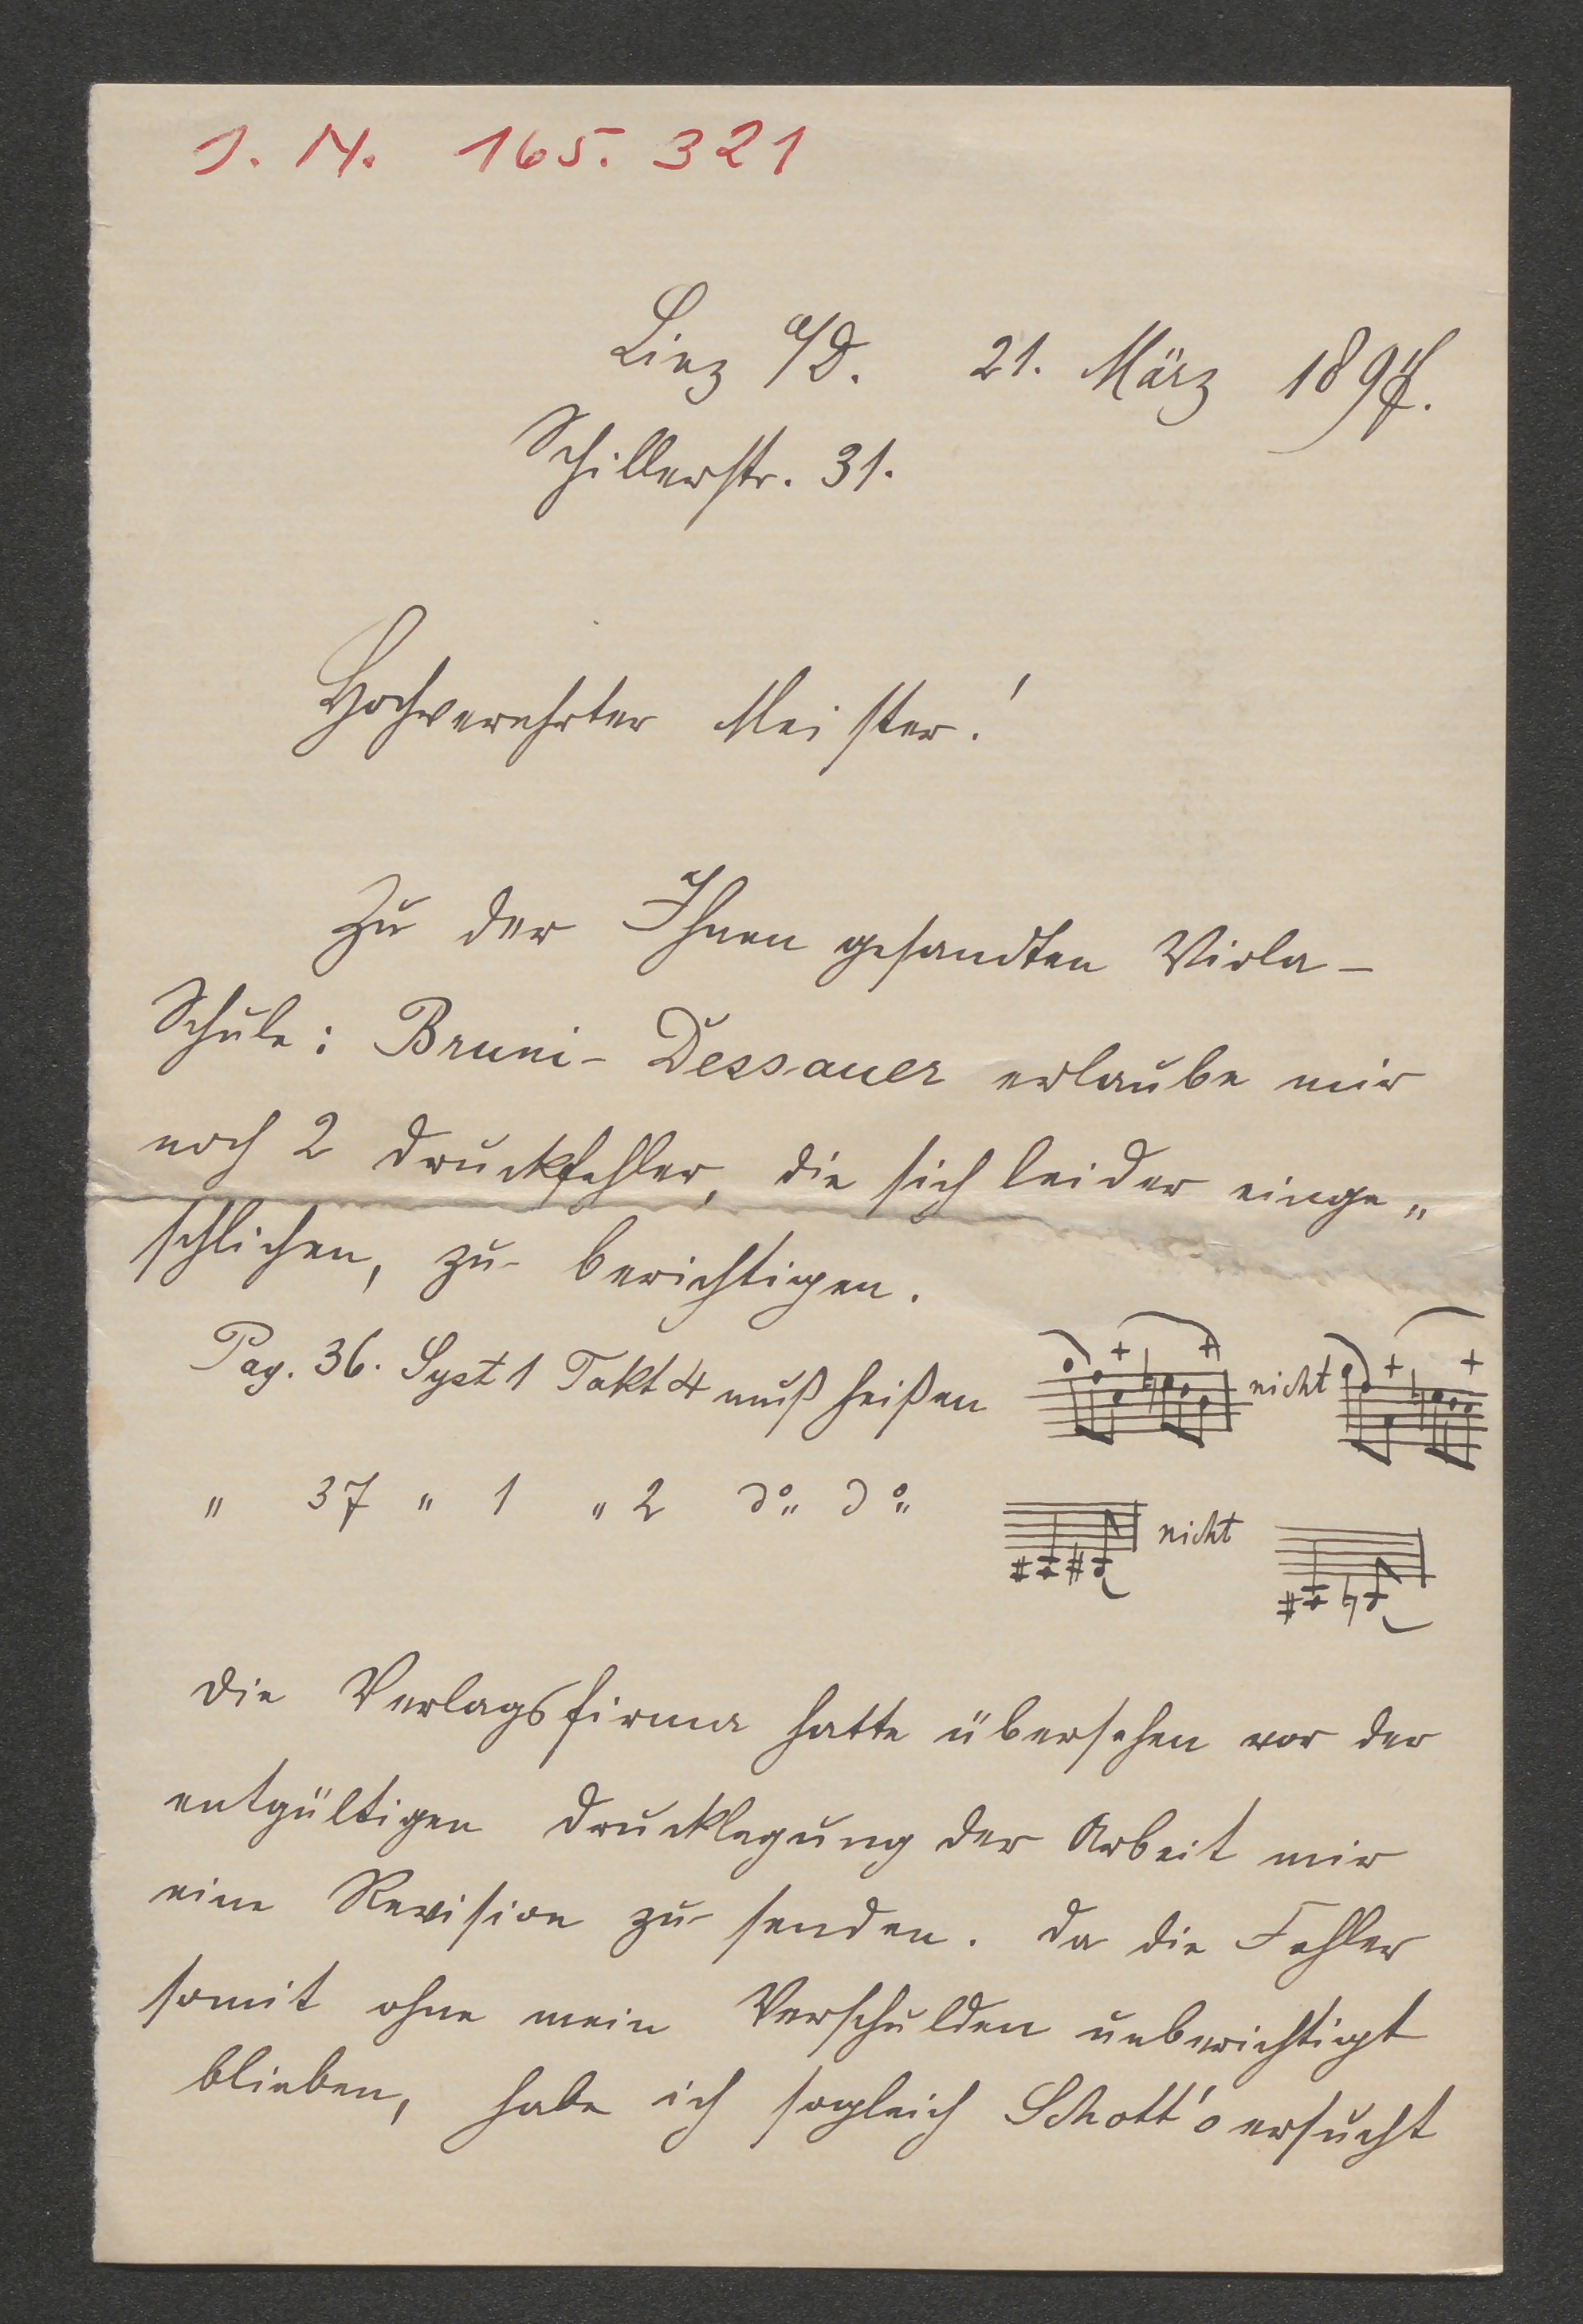 J. N. 165. 321
Linz a/D. 21. März 189
Schillerstr. 31.
Hochverehrter Meister!
Zu der Ihnen gesandten Viola-
Schule: Bruni-Dessauer erlaube mir
noch 2 Druckfehler, die sich leider einge„
schlichen, zu berichtigen.
Pag. 36. Syst 1 Takt 4 muß heißen nicht
" 37 " 1 " 2 do" do" nicht
Die Verlagsfirma hatte übersehen vor der
entgültigen Drucklegung der Arbeit mir
eine Revision zu senden. Da die Fehler
somit ohne mein Verschulden unberichtigt
blieben, habe ich sogleich Schott's ersucht